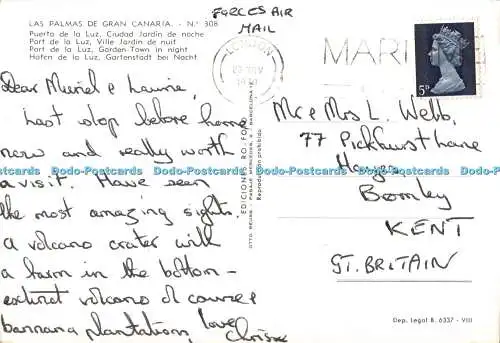 LAS PALMAS DE GRAN CANARIA. - N.º 308
Puerto de la Luz, Ciudad Jardín de noche
Port de la Luz, Ville Jardin de nuit
Port de la Luz, Garden-Town in night
Hafen de la Luz, Gartenstadt bei Nacht
FORCES AIR
MAIL
LONDON
1970
MARI
5D
Dear Muriel & Laurie,
Last stop before home
now and really worth
a visit. Have seen
the most amazing sights.
a volcano crater with
a farm in the bottom -
extinct volcano of course
bannana plantation,
love
Mr & Mrs L. Webb,
77 Pickhurst Lane
Hayes
Bromley
KENT
GT. BRITAIN
EDICIONES RO-FOTO
Reproducción prohibida
Dep. Legal B. 6337 - VIII
Dodo-Postcards Dodo-Postcards Dodo-Postcards Dodo-Postcards Dodo-Postcards